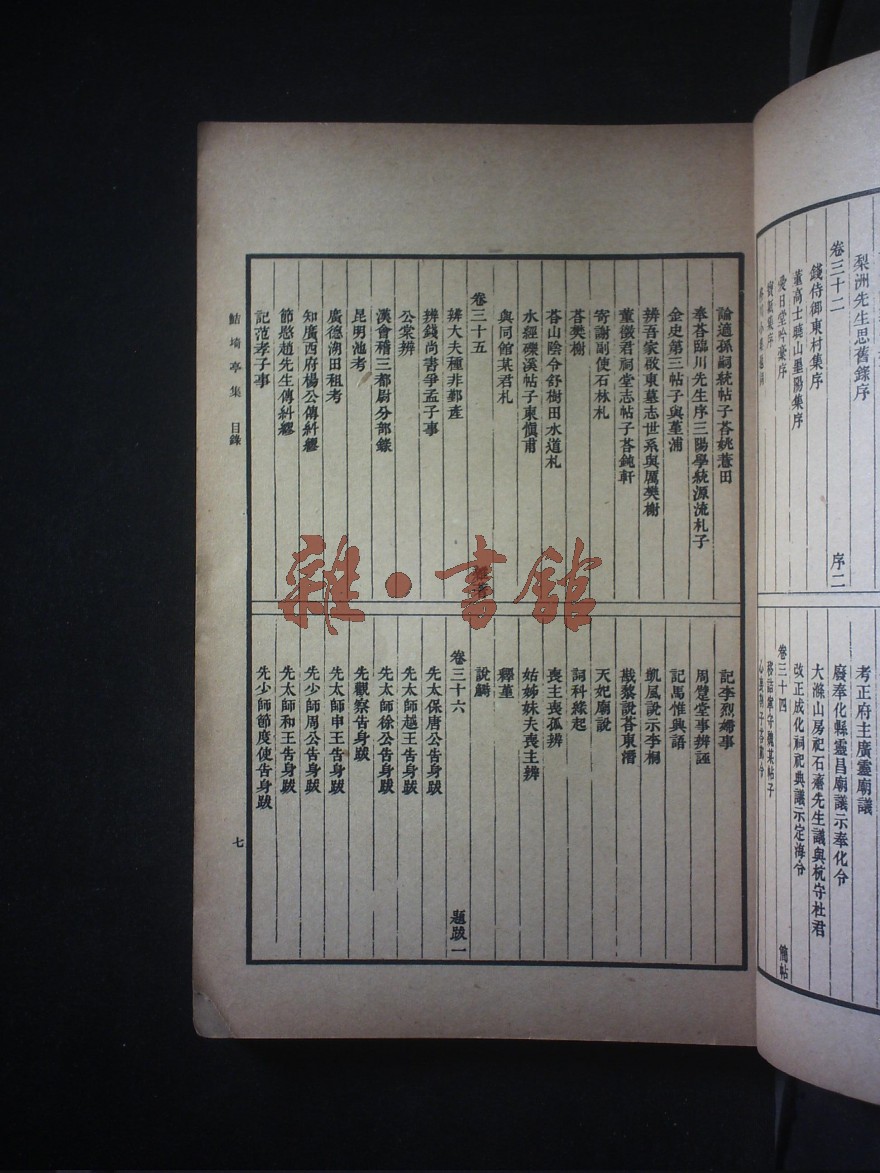 梨洲先生思舊錄序
卷三十二
序二
錢侍御東村集序
董高士曉山墨陽集序
愛日堂吟槀序
寶甈集序
考正府主廣靈廟議
廢奉化縣靈昌廟議示奉化令
大滌山房祀石齋先生議與杭守杜君
改正成化祠祀典議示定海令
卷三十四
簡帖
移詰寧守魏某帖子
論適孫嗣統帖子荅姚薏田
奉荅臨川先生序三陽學統源流札子
金史第三帖子與堇浦
辨吾家敬東墓志世系與厲樊榭
董徵君祠堂志帖子荅鈍軒
寄謝副使石林札
荅樊榭
荅山陰令舒樹田水道札
水經㶟溪帖子東愼甫
與同館某君札
卷三十五
雜著
辨大夫種非鄞產
辨錢尚書爭孟子事
公棠辨
漢會稽三都尉分部錄
昆明池考
廣德湖田租考
知廣西府楊公傳糾繆
節愍趙先生傳糾繆
記范孝子事
記李烈婦事
周躄堂事辨誣
記馬惟興語
凱風說示李桐
戡黎說荅東潛
天妃廟說
詞科緣起
喪主喪孤辨
姑姊妹夫喪主辨
釋堇
說麟
卷三十六
題跋一
先太保唐公告身跋
先太師越王告身跋
先太師徐公告身跋
先觀察告身跋
先太師申王告身跋
先少師周公告身跋
先太師和王告身跋
先少師節度使告身跋
鮚埼亭集 目錄
七
雜·書館